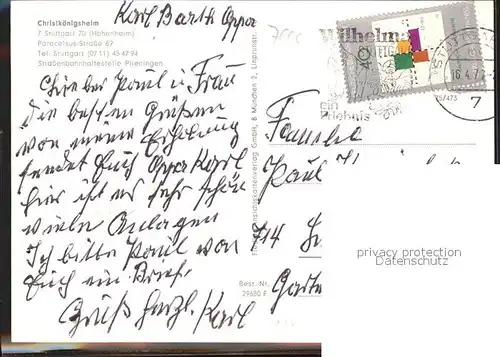 Karl Barth Oppa
Christkönigsheim
7 Stuttgart 70 (Hohenheim)
Paracelsus-Straße 67
Tel. Stuttgart (07 11) 45 47 94
Straßenbahnhaltestelle Plieningen
Paul u. Frau
die besten Grüßen
von meine Erholung
sendet Euch Oppa Karl
hier ist es sehr schön
viele Anlagen
Ich bitte Paul von
Euch ein Brief.
Gruß herzl. Karl
GmbH, 8 München 2,
Best.-Nr.
29680 F
Wilhelma
ein
Erlebnis
40
16.4.7
7
Familie
Paul
714
privacy protection
Datenschutz